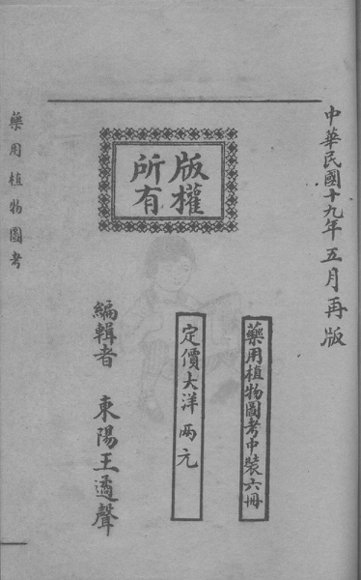 中華民國十九年五月再版
版權
所有
藥用植物圖考中裝六冊
定價大洋兩元
編輯者 東陽王遹聲
藥用植物圖考